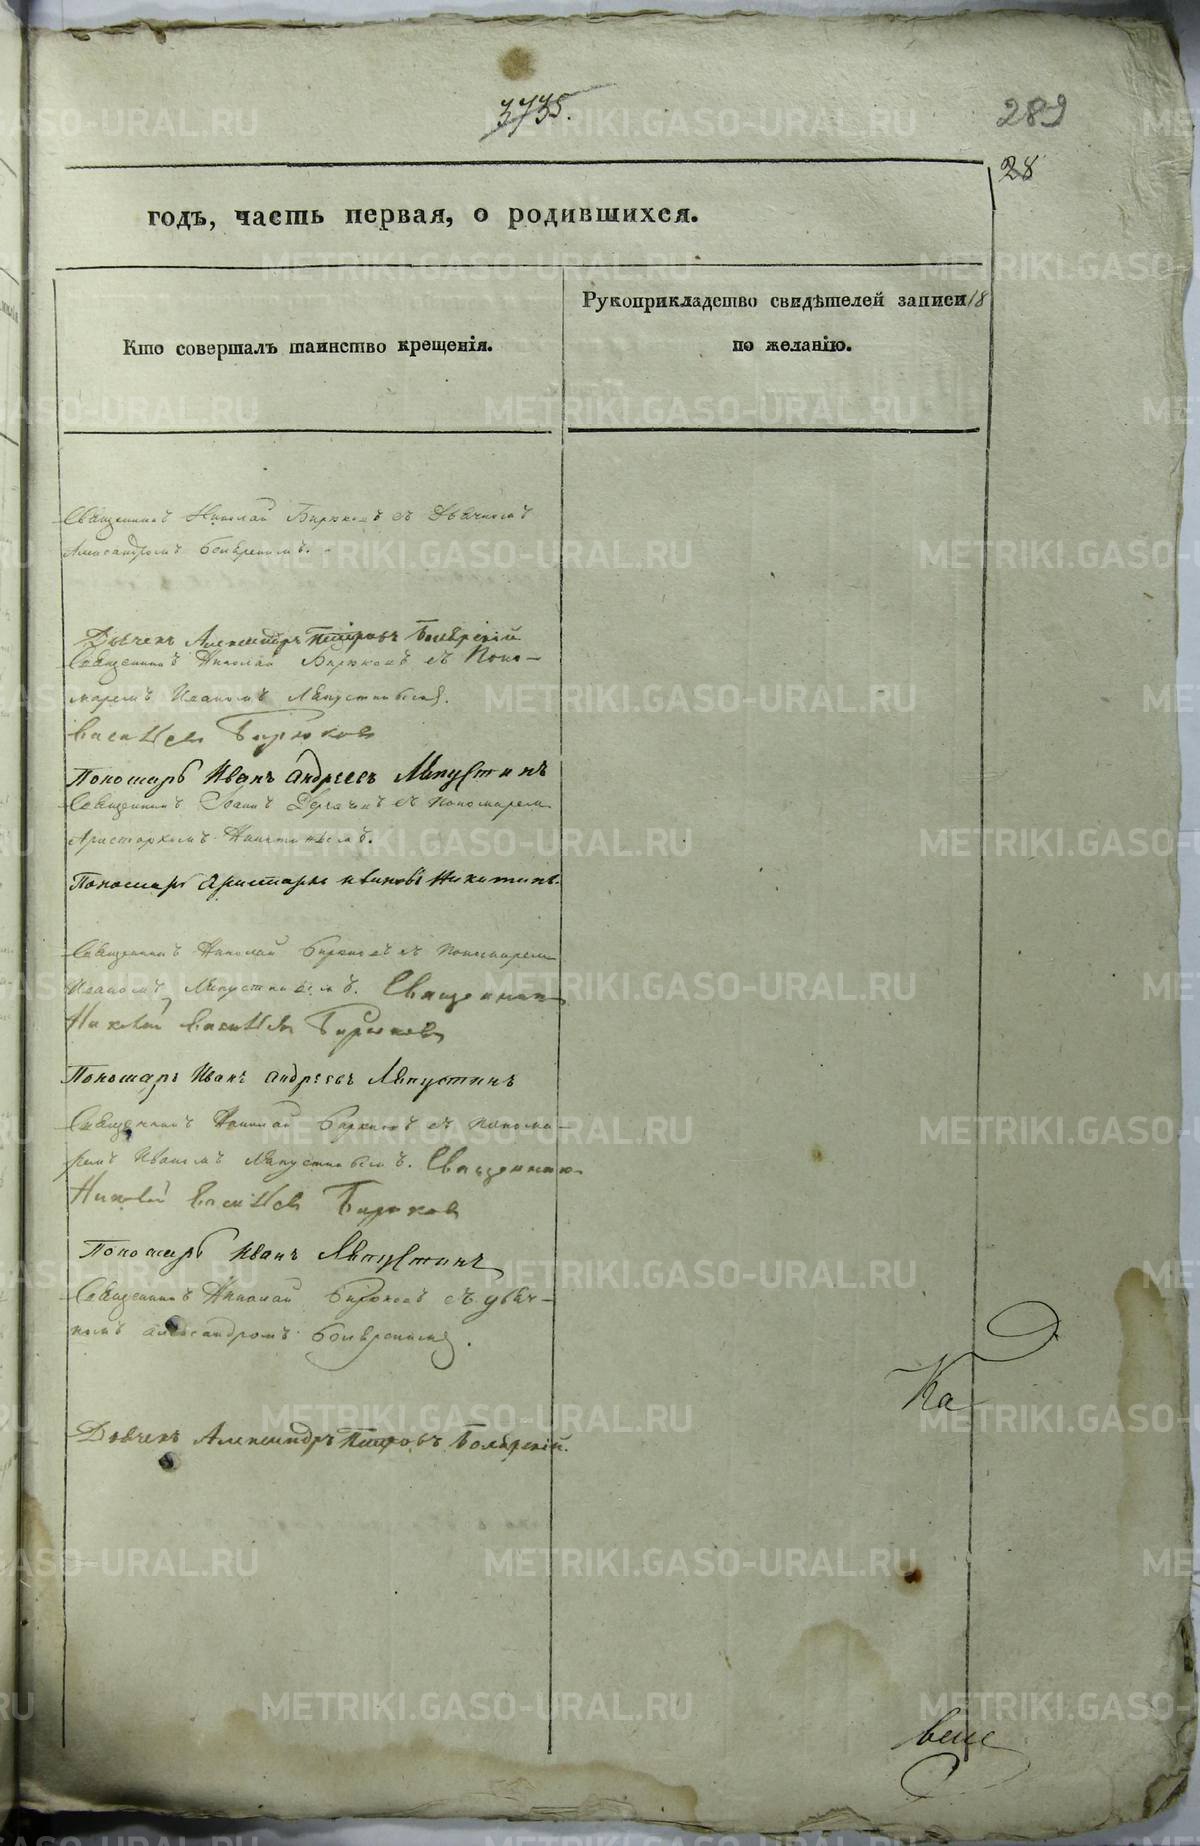 3735.
289
28
годъ, часть первая, о родившихся.
Кто совершалъ таинство крещенія.
Рукоприкладство свидѣтелей записи 18
по желанію.
Священникъ Николай Бирюковъ съ Дьячкомъ
Александромъ
Дьячекъ Александръ Петровъ Боярскій
Священникъ Николай Бирюковъ съ Поно-
маремъ Иваномъ
Бирюковъ
Пономарь Иванъ Андреевъ Ляпустинъ
Священникъ Іоаннъ съ Пономаремъ
Аристархомъ Никитинымъ.
Пономарь Аристархъ Никитинъ.
Священникъ Николай Бирюковъ съ Пономаремъ
Иваномъ Ляпустинымъ. Священникъ
Николай Бирюковъ
Пономарь Иванъ Андреевъ Ляпустинъ
Священникъ Николай Бирюковъ съ Понома-
ремъ Иваномъ Ляпустинымъ. Священникъ
Николай Бирюковъ
Пономарь Иванъ Ляпустинъ
Священникъ Николай Бирюковъ съ дьяч-
комъ Александромъ
Ка
Дьячекъ Александръ Петровъ Боярскій.
METRIKI.GASO-URAL.RU